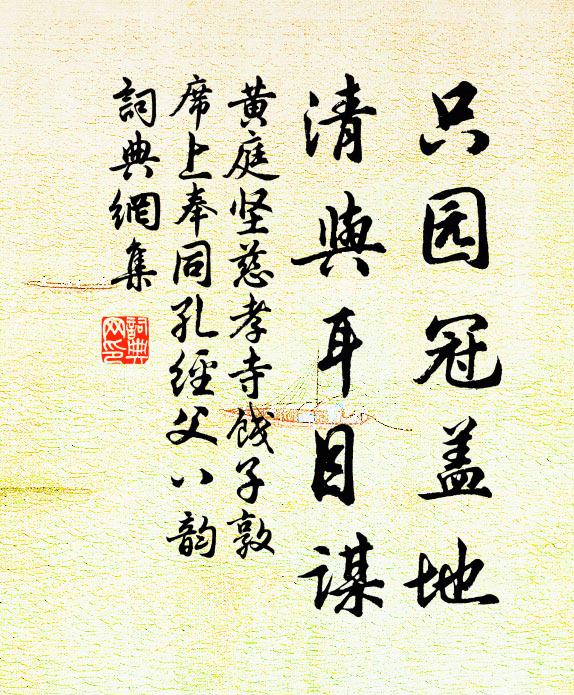 只园冠盖地
清與耳目谋
黄庭坚慈孝寺饯子敦
席上奉同孔經父八韵
詞典網集
詞典网印